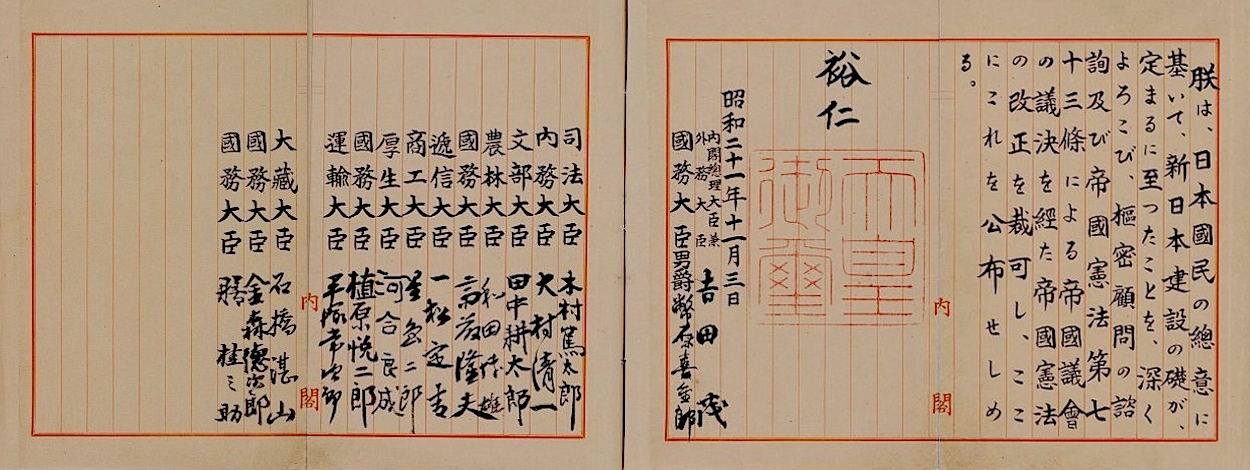 朕は、日本國民の總意に
基いて、新日本建設の礎が、
定まるに至つたことを、深く
よろこび、樞密顧問の諮
詢及び帝國憲法第七
十三條による帝國議會
の議決を經た帝國憲法
の改正を裁可し、ここ
にこれを公布せしめ
る。
裕仁
天皇御璽
昭和二十一年十一月三日
內閣總理大臣兼
外務大臣 吉田茂
國務大臣 男爵幣原喜重郎
司法大臣 木村篤太郎
內務大臣 大村清一
文部大臣 田中耕太郎
農林大臣 和田博雄
國務大臣 斎藤隆夫
遞信大臣 一松定吉
商工大臣 星島二郎
厚生大臣 河合良成
國務大臣 植原悦二郎
運輸大臣 平塚常次郎
大藏大臣 石橋湛山
國務大臣 金森德次郎
國務大臣 膳桂之助
內閣
內閣